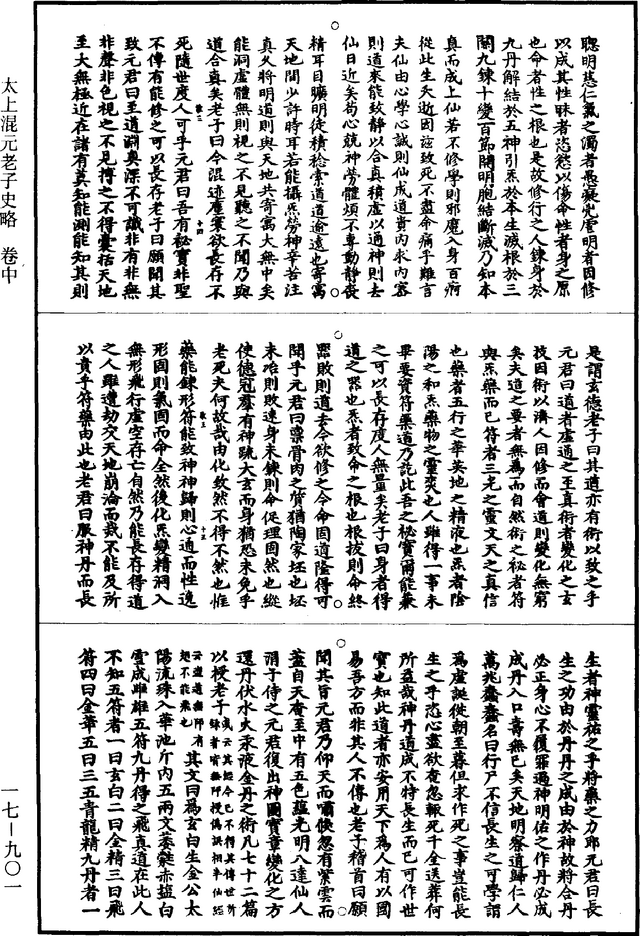 太上混元老子史略 卷中
一七-九〇一
聰明慈仁氣之濁者愚癡兇虐明者因修
以成其性昧者恣慾以傷命性者身之原
也命者性之根也是故修行之人鍊身於
九丹解結於五神引炁於本生滅根於三
關九鍊十變百節開明胞結斷滅乃知本
真而成上仙若不修學則邪魔入身百痾
從此生天逝因茲致死不盡命痛乎難言
夫仙由心學心誠則仙成道貴內求內密
則道來能致靜以合真積虛以通神則去
仙日近矣苟心競神勞體煩不專動靜喪
精耳目曠明徒積稔索道道逾遠也寄寓
天地間少許時耳若能攝炁勞神辛苦注
真久將明道則與天地共寄寓大無中矣
能洞虛體無則視之不見聽之不聞乃與
道合真矣老子曰今混迹塵寰欲長存不
死隨世度人可乎元君曰吾有祕寶非聖
不傳有能修之可以長存老子曰願聞其
致元君曰至道淵奧深不可識非有非無
非聲非色視之不見搏之不得囊括天地
至大無極近在諸有莫知能測能知其則
是謂玄德老子曰其道亦有術以致之乎
元君曰道者虛通之至真術者變化之玄
技因術以濟人因修而會道則變化無窮
矣夫道之要者無為而自然術之祕者符
與炁藥而已符者三光之靈文天之真信
也藥者五行之華英地之精液也炁者陰
陽之和炁藥物之靈爽也人雖得一事未
畢要資符藥道乃訖此吾之祕寶爾能兼
之可以長存度人無量矣老子曰身者得
道之器也炁者致命之根也根拔則命終
器敗則道去今欲修之令命固道隆得可
聞乎元君曰稟骨肉之質猶陶家坯也坯
未冶則敗速身未鍊則命促理固然也縱
使德冠群有神疏大玄而身猶恐未免乎
老死夫何故哉由化致然不得不然也惟
藥能鍊形符能致神神歸則心通而性逸
形固則氣固而命全然後化炁變精洞入
無形飛行虛空存亡自然乃能長存得道
之人雖遭劫交天地崩淪而災不能及所
以貴乎符藥由此也老君曰服神丹而長
生者神靈祐之乎將藥之力耶元君曰長
生之功由於丹丹之成由於神故將合丹
必正身心不復罪過神明佑之作丹必成
成丹入口壽無已矣天地明察道歸仁人
萬兆蠢蠢名曰行尸不信長生之可學謂
為虛誕從朝至暮但求作死之事豈能長
生之乎恣心盡欲奄忽輒死千金送葬何
所益哉神丹道成不特長生而已可作世
寶也知此道者亦安用天下為人有以國
易吾方而非其人不傳也老子稽首曰願
聞其旨元君乃仰天而嘯倏忽有紫雲而
蓋自天奄至中有五色蘊光明八達仙人
謂子侍之元君復出神圖寶章變化之方
還丹伏水火汞液金丹之術凡七十二篇
以授老子
其文曰為玄白生金公太
陽流珠入華池斤內五兩文萎蕤赤鹽白
雪成雌雄五符九丹得之飛真道在此人
不知五符者一曰玄白二曰金精三曰飛
符四曰金華五曰三五青龍精九丹者一